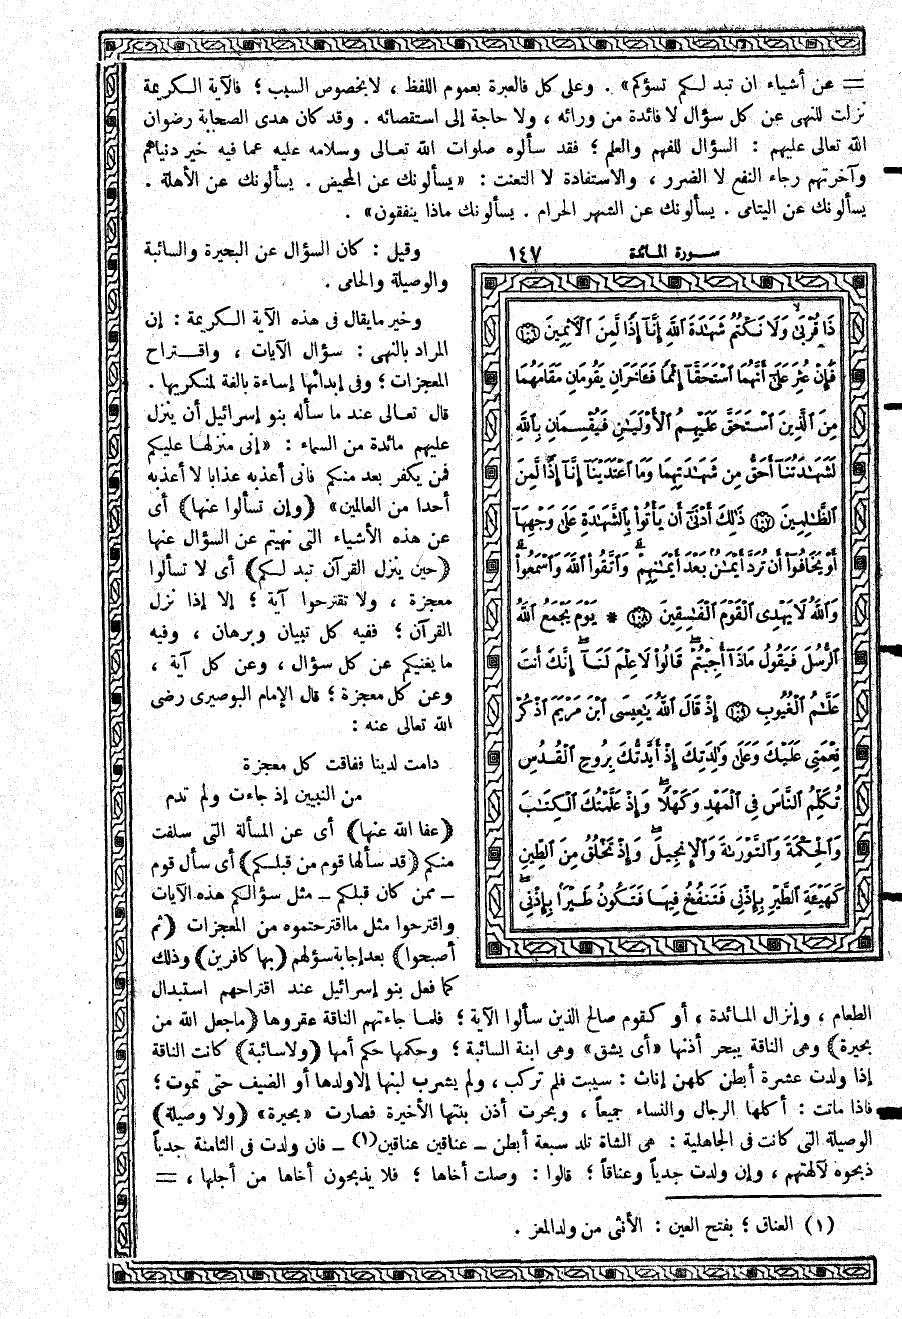 = عن أشياء ان تبد لكم تسؤكم» . وعلى كل فالعبرة بعموم اللفظ ، لابخصوص السبب ؛ فالآية الكريمة
نزلت للنهى عن كل سؤال لا فائدة من ورائه ، ولا حاجة إلى استقصائه . وقد كان هدى الصحابة رضوان
الله تعالى عليهم : السؤال للفهم والعلم ؛ فقد سألوه صلوات الله تعالى وسلامه عليه عما فيه خير دنياهم
وآخرتهم رجاء النفع لا الضرر ، والاستفادة لا التعنت : «يسألونك عن المحيض . يسألونك عن الأهلة .
يسألونك عن اليتامى . يسألونك عن الشهر الحرام . يسألونك ماذا ينفقون» .
سورة المائدة ١٤٧
ذَا قُرْبَىٰ وَلَا نَكْتُمُ شَهَـٰدَةَ ٱللَّهِ إِنَّآ إِذًا لَّمِنَ ٱلْآثِمِينَ ١٠٦
فَإِنْ عُثِرَ عَلَىٰٓ أَنَّهُمَا ٱسْتَحَقَّآ إِثْمًا فَـَٔاخَرَانِ يَقُومَانِ مَقَامَهُمَا
مِنَ ٱلَّذِينَ ٱسْتَحَقَّ عَلَيْهِمُ ٱلْأَوْلَيَـٰنِ فَيُقْسِمَانِ بِٱللَّهِ
لَشَهَـٰدَتُنَآ أَحَقُّ مِن شَهَـٰدَتِهِمَا وَمَا ٱعْتَدَيْنَآ إِنَّآ إِذًا لَّمِنَ
ٱلظَّـٰلِمِينَ ١٠٧ ذَٰلِكَ أَدْنَىٰٓ أَن يَأْتُوا۟ بِٱلشَّهَـٰدَةِ عَلَىٰ وَجْهِهَآ
أَوْ يَخَافُوٓا۟ أَن تُرَدَّ أَيْمَـٰنٌۢ بَعْدَ أَيْمَـٰنِهِمْ ۗ وَٱتَّقُوا۟ ٱللَّهَ وَٱسْمَعُوا۟ ۗ
وَٱللَّهُ لَا يَهْدِى ٱلْقَوْمَ ٱلْفَـٰسِقِينَ ١٠٨ * يَوْمَ يَجْمَعُ ٱللَّهُ
ٱلرُّسُلَ فَيَقُولُ مَاذَآ أُجِبْتُمْ ۖ قَالُوا۟ لَا عِلْمَ لَنَآ ۖ إِنَّكَ أَنتَ
عَلَّـٰمُ ٱلْغُيُوبِ ١٠٩ إِذْ قَالَ ٱللَّهُ يَـٰعِيسَى ٱبْنَ مَرْيَمَ ٱذْكُرْ
نِعْمَتِى عَلَيْكَ وَعَلَىٰ وَٰلِدَتِكَ إِذْ أَيَّدتُّكَ بِرُوحِ ٱلْقُدُسِ
تُكَلِّمُ ٱلنَّاسَ فِى ٱلْمَهْدِ وَكَهْلًا ۖ وَإِذْ عَلَّمْتُكَ ٱلْكِتَـٰبَ
وَٱلْحِكْمَةَ وَٱلتَّوْرَىٰةَ وَٱلْإِنجِيلَ ۖ وَإِذْ تَخْلُقُ مِنَ ٱلطِّينِ
كَهَيْـَٔةِ ٱلطَّيْرِ بِإِذْنِى فَتَنفُخُ فِيهَا فَتَكُونُ طَيْرًۢا بِإِذْنِى ۖ
وقيل : كان السؤال عن البحيرة والسائبة
والوصيلة والحامى .
وخير مايقال فى هذه الآية الكريمة : إن
المراد بالنهى : سؤال الآيات ، واقتراح
المعجزات ؛ وفى إبدائها إساءة بالغة لمنكريها .
قال تعالى عند ما سأله بنو إسرائيل أن ينزل
عليهم مائدة من السماء : «إنى منزلها عليكم
فمن يكفر بعد منكم فانى أعذبه عذابا لا أعذبه
أحدا من العالمين» (وإن تسألوا عنها) أى
عن هذه الأشياء التى نهيتم عن السؤال عنها
(حين ينزل القرآن تبد لكم) أى لا تسألوا
معجزة ، ولا تقترحوا آية ؛ إلا إذا نزل
القرآن ؛ ففيه كل تبيان وبرهان ، وفيه
ما يغنيكم عن كل سؤال ، وعن كل آية ،
وعن كل معجزة ؛ قال الإمام البوصيرى رضى
الله تعالى عنه :
دامت لدينا ففاقت كل معجزة
من النبيين إذ جاءت ولم تدم
(عفا الله عنها) أى عن المسألة التى سلفت
منكم (قد سألها قوم من قبلكم) أى سأل قوم
ـ ممن كان قبلكم ـ مثل سؤالكم هذه الآيات
واقترحوا مثل مااقترحتموه من المعجزات (ثم
أصبحوا) بعد إجابة سؤلهم (بها كافرين) وذلك
كما فعل بنو إسرائيل عند اقتراحهم استبدال
الطعام ، وإنزال المائدة ، أو كقوم صالح الذين سألوا الآية ؛ فلما جاءتهم الناقة عقروها (ماجعل الله من
بحيرة) وهى الناقة يبحر أذنها «أى يشق» وهى ابنة السائبة ؛ وحكمها حكم أمها (ولاسائبة) كانت الناقة
إذا ولدت عشرة أبطن كلهن إناث : سيبت فلم تركب ، ولم يشرب لبنها إلاولدها أو الضيف حتى تموت ؛
فاذا ماتت : أكلها الرجال والنساء جميعاً ، وبحرت أذن بنتها الأخيرة فصارت «بحيرة» (ولا وصيلة)
الوصيلة التى كانت فى الجاهلية : هى الشاة تلد سبعة أبطن ـ عناقين عناقين(١) ـ فان ولدت فى الثامنة جدياً
ذبحوه لآلهتهم ، وإن ولدت جدياً وعناقاً ؛ قالوا : وصلت أخاها ؛ فلا يذبحون أخاها من أجلها ، =
(١) العناق ؛ بفتح العين : الأنثى من ولدالمعز .